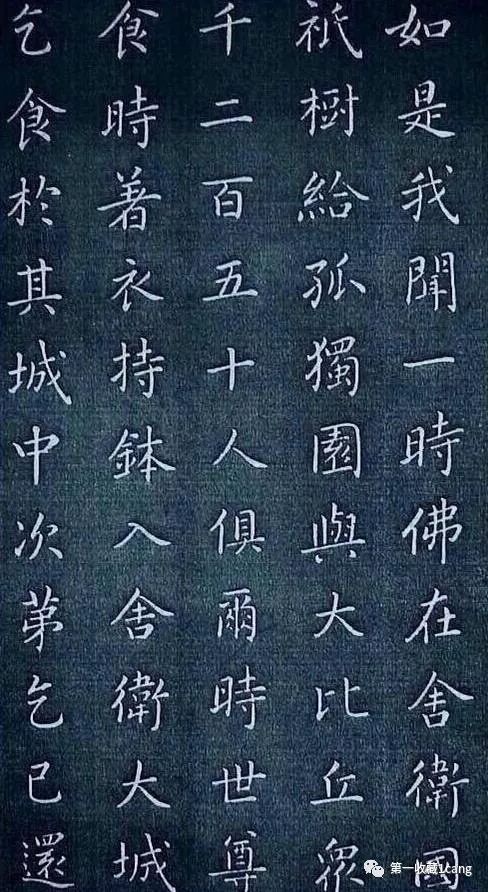 如是我聞一時佛在舍衛國
祇樹給孤獨園與大比丘眾
千二百五十人俱爾時世尊
食時著衣持鉢入舍衛大城
乞食於其城中次第乞已還
第一收藏1cang